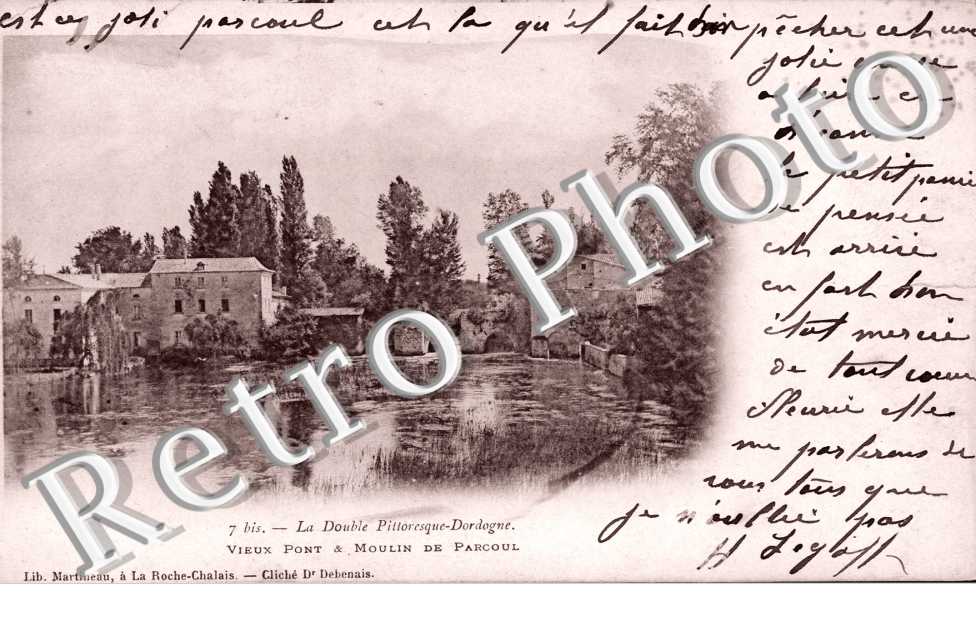 est ce joli parcoul cet la qu'il fait bon pêcher cet une
jolie
petit panie
de pensée
est arrisé
en fort bon
état mercie
de tout cœur
fleurie elle
me parlerons de
vous tous que
je n'oublie pas
H Legoff
Retro Photo
7 bis. — La Double Pittoresque-Dordogne.
Vieux Pont & Moulin de Parcoul
Lib. Martineau, à La Roche-Chalais. — Cliché Dr Debenais.